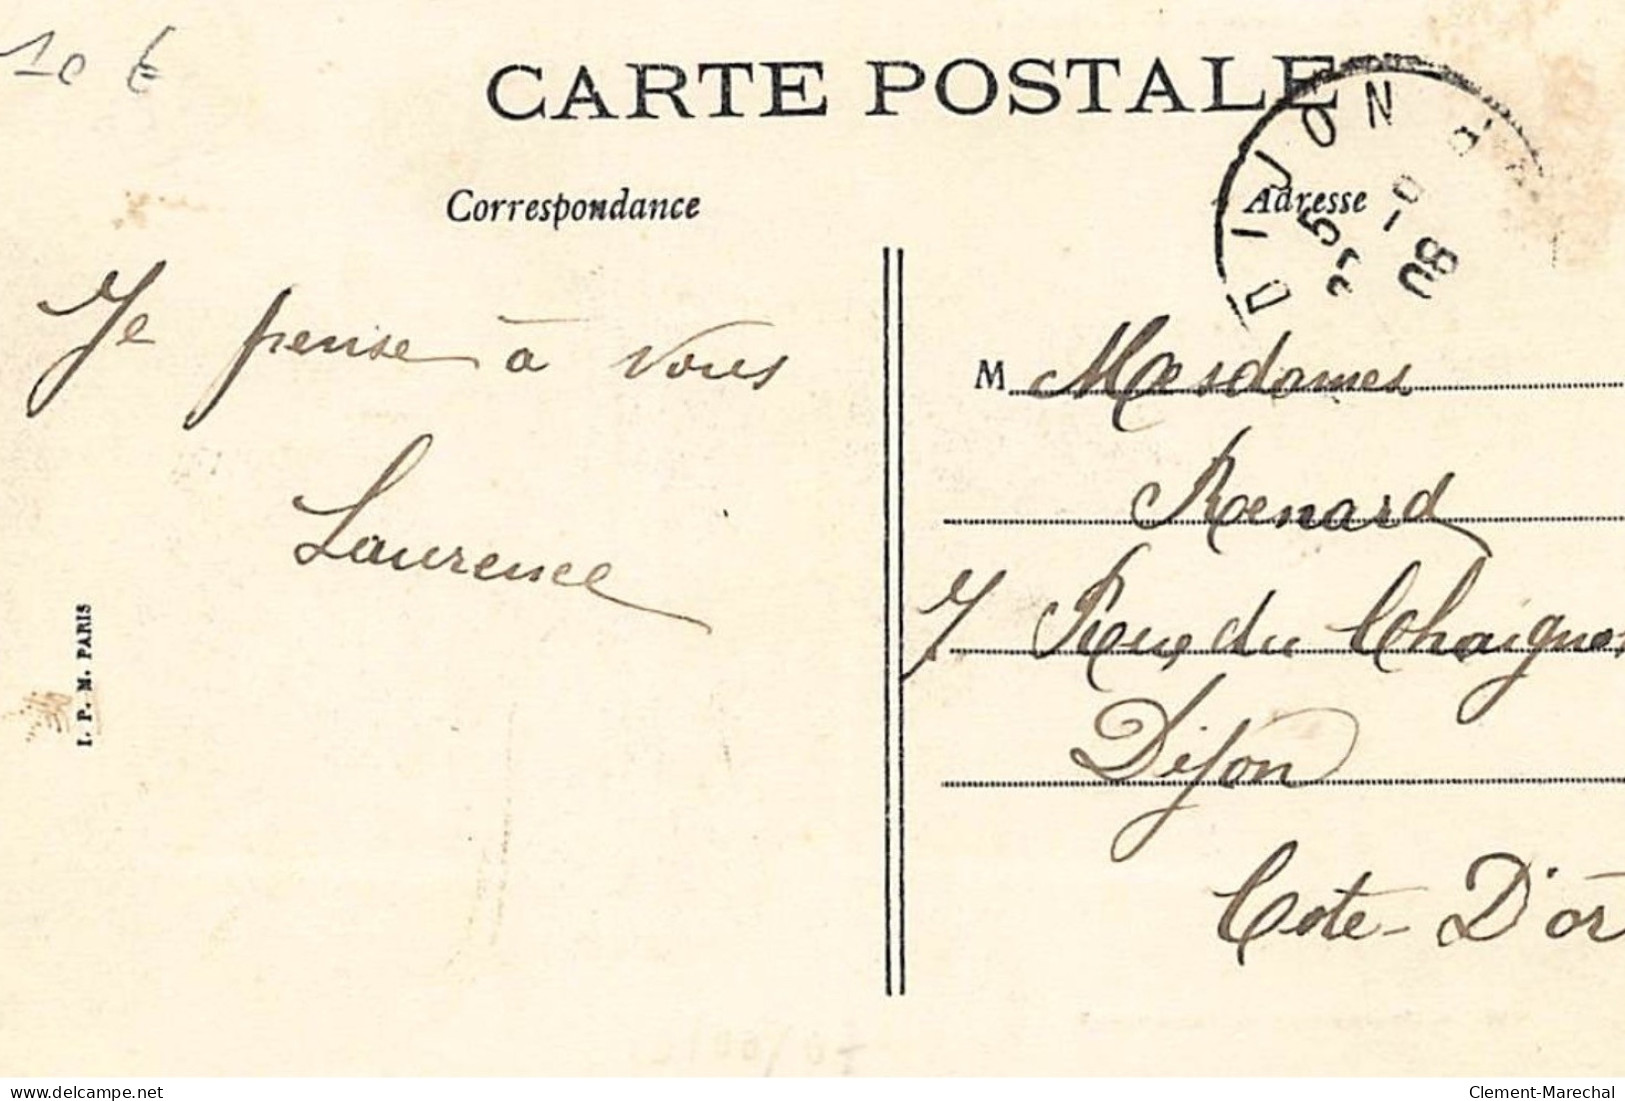 10 €
CARTE POSTALE
DIJON
5
08
Correspondance
Adresse
Je pense à vous
Laurence
M Mesdames
Renard
7 Rue du Chaignot
Dijon
Côte-D'or
I. P. M. PARIS
delcampe.net
Clement-Marechal